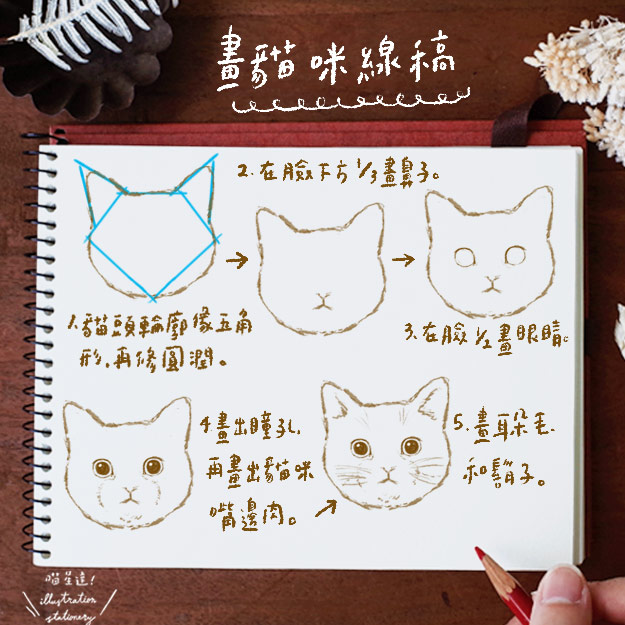 畫貓咪線稿
2. 在臉下方1/3畫鼻子。
1.貓頭輪廓像五角
形,再修圓潤。
3.在臉1/2畫眼睛。
4.畫出瞳孔,
再畫出貓咪
嘴邊肉。
5.畫耳朵毛
和鬍子。
喵星達!
illustration
stationery